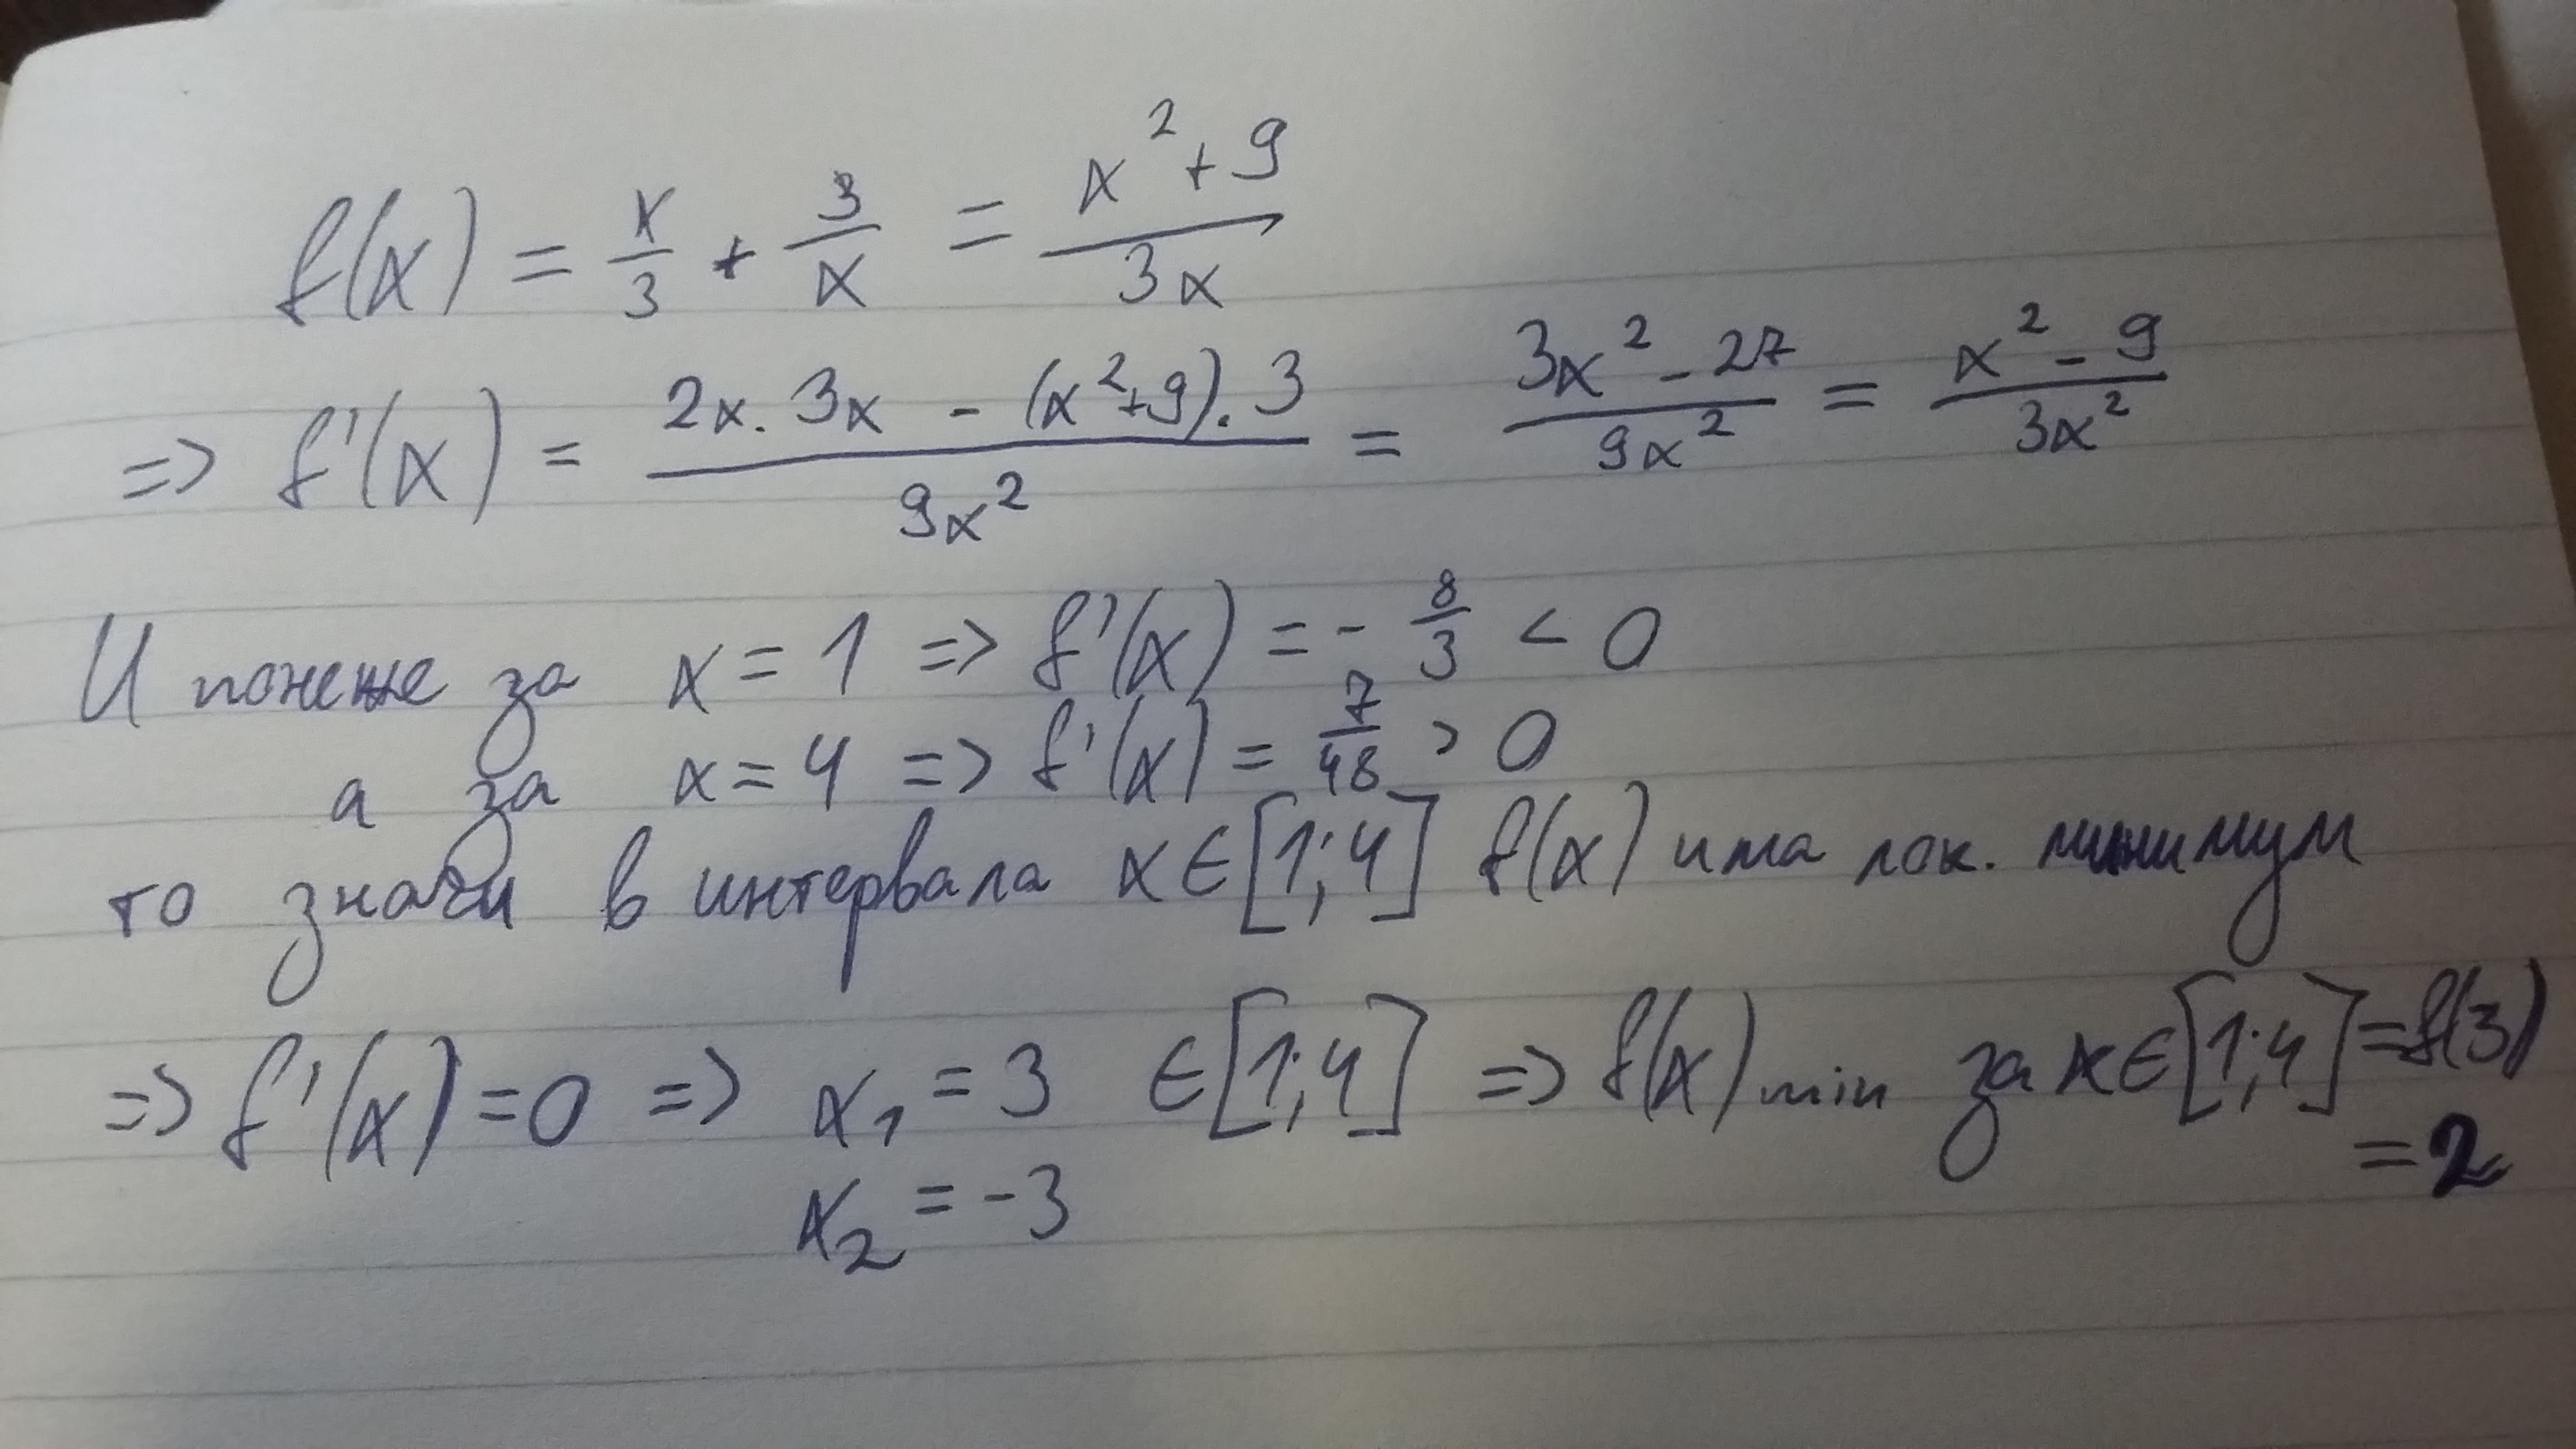 f(x) = x/3 + 3/x = (x² + 9)/(3x)
=> f'(x) = (2x . 3x - (x²+9) . 3)/(9x²) = (3x² - 27)/(9x²) = (x² - 9)/(3x²)
И понеже за x = 1 => f'(x) = - 8/3 < 0
а за x = 4 => f'(x) = 7/48 > 0
то значи в интервала x ∈ [1;4] f(x) има лок. минимум
=> f'(x) = 0 => x₁ = 3 ∈ [1;4] => f(x) min за x ∈ [1;4] = f(3)
= 2
x₂ = -3